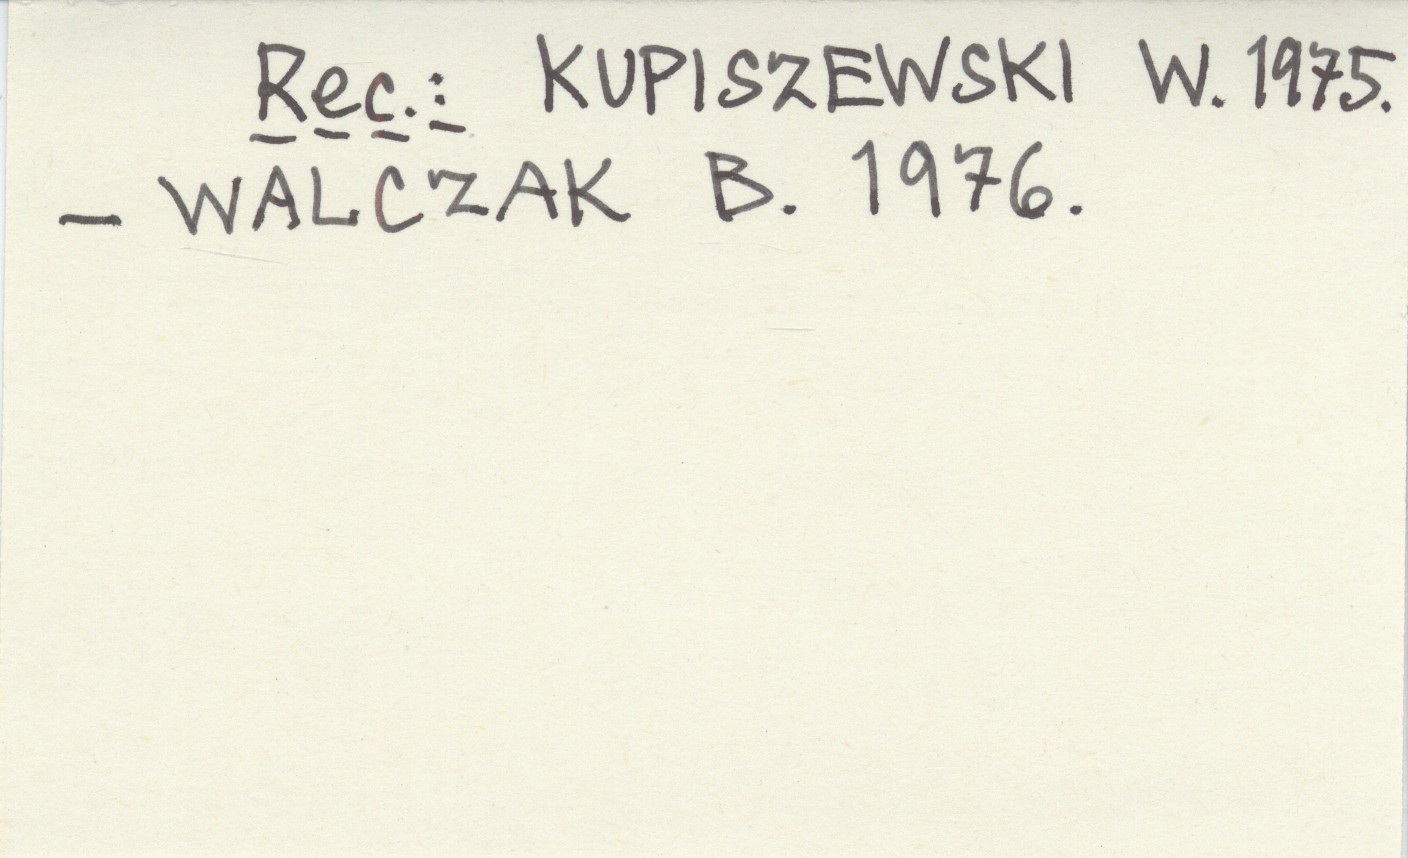 Rec.: KUPISZEWSKI W. 1975.
— WALCZAK B. 1976.